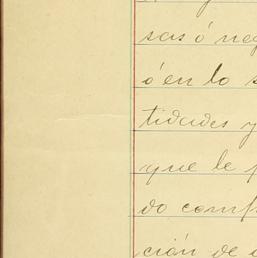 sas ó neg
ó en lo s
tidades y
que le p
do comp
ción de